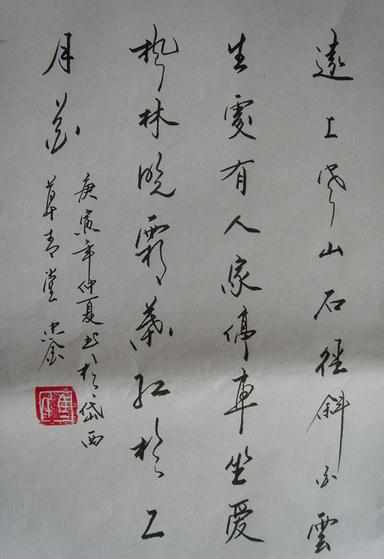 遠上寒山石徑斜白雲
生處有人家停車坐愛
楓林晚霜葉紅於二
月花
庚寅年仲夏書於岱西
草青堂